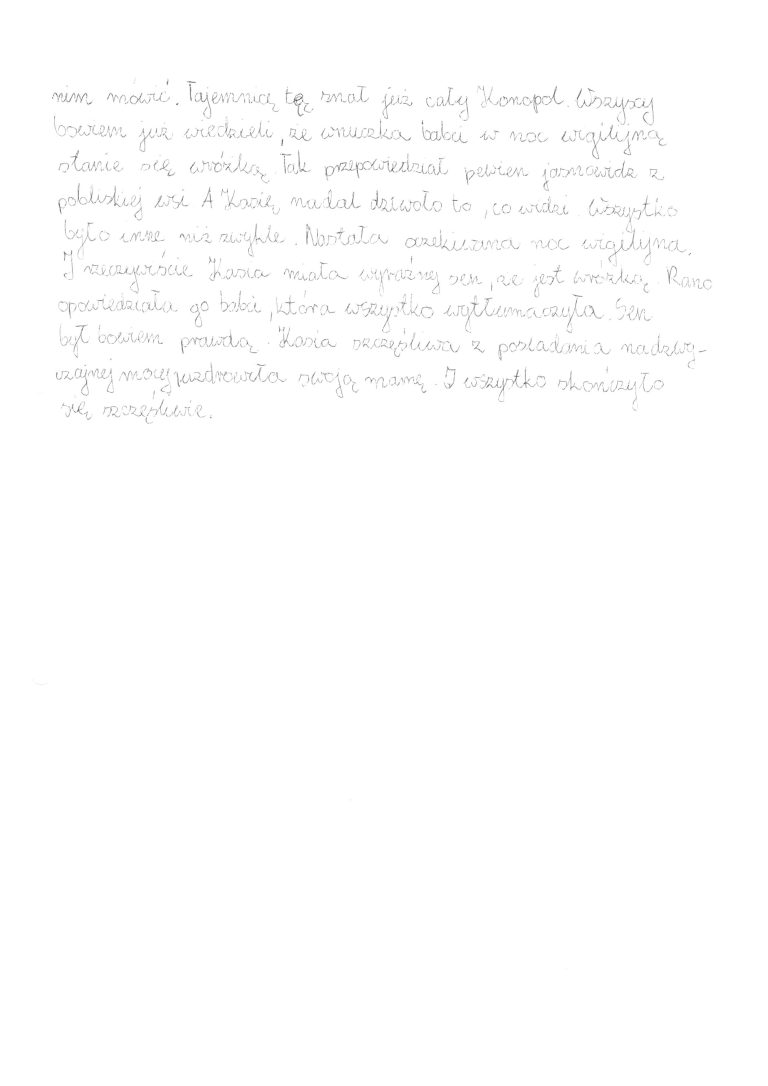 nim mówić. Tajemnicę tę znał już cały Konopol. Wszyscy
bowiem już wiedzieli, że wnuczka babci w noc wigilijną
stanie się wróżką. Tak przepowiedział pewien jasnowidz z
pobliskiej wsi A Kasię, nadal dziwoło to, co widzi. Wszystko
było inne niż zwykle. Nastała oczekiwana noc wigilijna.
I rzeczywiście Kasia miała wyraźnej sen, że jest wróżką. Rano
opowiedziała go babci, która wszystko wytłumaczyła. Sen
był bowiem prawdą. Kasia szczęśliwa z posiadania nadzwy-
czajnej mocy uzdrowiła swoją mamę. I wszystko skończyło
się szczęśliwie.